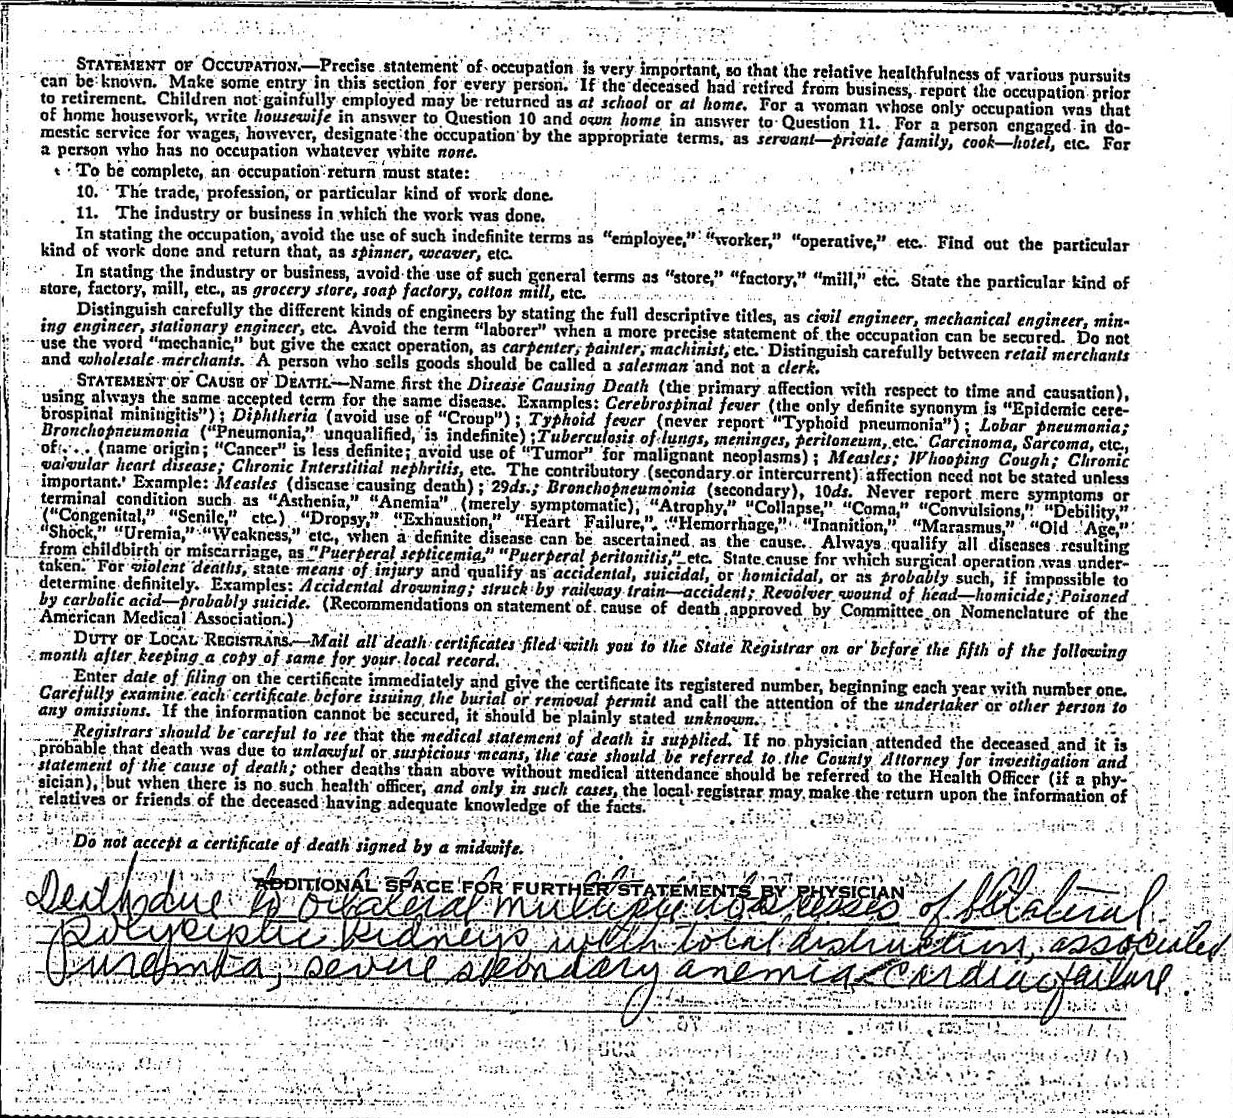 STATEMENT OF OCCUPATION.—Precise statement of occupation is very important, so that the relative healthfulness of various pursuits
can be known. Make some entry in this section for every person. If the deceased had retired from business, report the occupation prior
to retirement. Children not gainfully employed may be returned as at school or at home. For a woman whose only occupation was that
of home housework, write housewife in answer to Question 10 and own home in answer to Question 11. For a person engaged in do-
mestic service for wages, however, designate the occupation by the appropriate terms, as servant—private family, cook—hotel, etc. For
a person who has no occupation whatever white none.
To be complete, an occupation return must state:
10. The trade, profession, or particular kind of work done.
11. The industry or business in which the work was done.
In stating the occupation, avoid the use of such indefinite terms as "employee," "worker," "operative," etc. Find out the particular
kind of work done and return that, as spinner, weaver, etc.
In stating the industry or business, avoid the use of such general terms as "store," "factory," "mill," etc. State the particular kind of
store, factory, mill, etc., as grocery store, soap factory, cotton mill, etc.
Distinguish carefully the different kinds of engineers by stating the full descriptive titles, as civil engineer, mechanical engineer, min-
ing engineer, stationary engineer, etc. Avoid the term "laborer" when a more precise statement of the occupation can be secured. Do not
use the word "mechanic," but give the exact operation, as carpenter, painter, machinist, etc. Distinguish carefully between retail merchants
and wholesale merchants. A person who sells goods should be called a salesman and not a clerk.
STATEMENT OF CAUSE OF DEATH.—Name first the Disease Causing Death (the primary affection with respect to time and causation),
using always the same accepted term for the same disease. Examples: Cerebrospinal fever (the only definite synonym is "Epidemic cere-
brospinal miningitis"); Diphtheria (avoid use of "Croup"); Typhoid fever (never report "Typhoid pneumonia"); Lobar pneumonia;
Bronchopneumonia ("Pneumonia," unqualified, is indefinite); Tuberculosis of lungs, meninges, peritoneum, etc. Carcinoma, Sarcoma, etc.,
of . . . (name origin; "Cancer" is less definite; avoid use of "Tumor" for malignant neoplasms); Measles; Whooping Cough; Chronic
valvular heart disease; Chronic Interstitial nephritis, etc. The contributory (secondary or intercurrent) affection need not be stated unless
important. Example: Measles (disease causing death); 29ds.; Bronchopneumonia (secondary), 10ds. Never report mere symptoms or
terminal condition such as "Asthenia," "Anemia" (merely symptomatic), "Atrophy," "Collapse," "Coma," "Convulsions," "Debility,"
("Congenital," "Senile," etc.) "Dropsy," "Exhaustion," "Heart Failure," "Hemorrhage," "Inanition," "Marasmus," "Old Age,"
"Shock," "Uremia," "Weakness," etc., when a definite disease can be ascertained as the cause. Always qualify all diseases resulting
from childbirth or miscarriage, as "Puerperal septicemia," "Puerperal peritonitis," etc. State cause for which surgical operation was under-
taken. For violent deaths, state means of injury and qualify as accidental, suicidal, or homicidal, or as probably such, if impossible to
determine definitely. Examples: Accidental drowning; struck by railway train—accident; Revolver wound of head—homicide; Poisoned
by carbolic acid—probably suicide. (Recommendations on statement of cause of death approved by Committee on Nomenclature of the
American Medical Association.)
DUTY OF LOCAL REGISTRARS.—Mail all death certificates filed with you to the State Registrar on or before the fifth of the following
month after keeping a copy of same for your local record.
Enter date of filing on the certificate immediately and give the certificate its registered number, beginning each year with number one.
Carefully examine each certificate before issuing the burial or removal permit and call the attention of the undertaker or other person to
any omissions. If the information cannot be secured, it should be plainly stated unknown.
Registrars should be careful to see that the medical statement of death is supplied. If no physician attended the deceased and it is
probable that death was due to unlawful or suspicious means, the case should be referred to the County Attorney for investigation and
statement of the cause of death; other deaths than above without medical attendance should be referred to the Health Officer (if a phy-
sician), but when there is no such health officer, and only in such cases, the local registrar may make the return upon the information of
relatives or friends of the deceased having adequate knowledge of the facts.
Do not accept a certificate of death signed by a midwife.
ADDITIONAL SPACE FOR FURTHER STATEMENTS BY PHYSICIAN
Death due to bilateral multiple abscesses of bilateral
Polycystic Kidneys with total distruction, associated
uremia, severe secondary anemia cardiac failure.